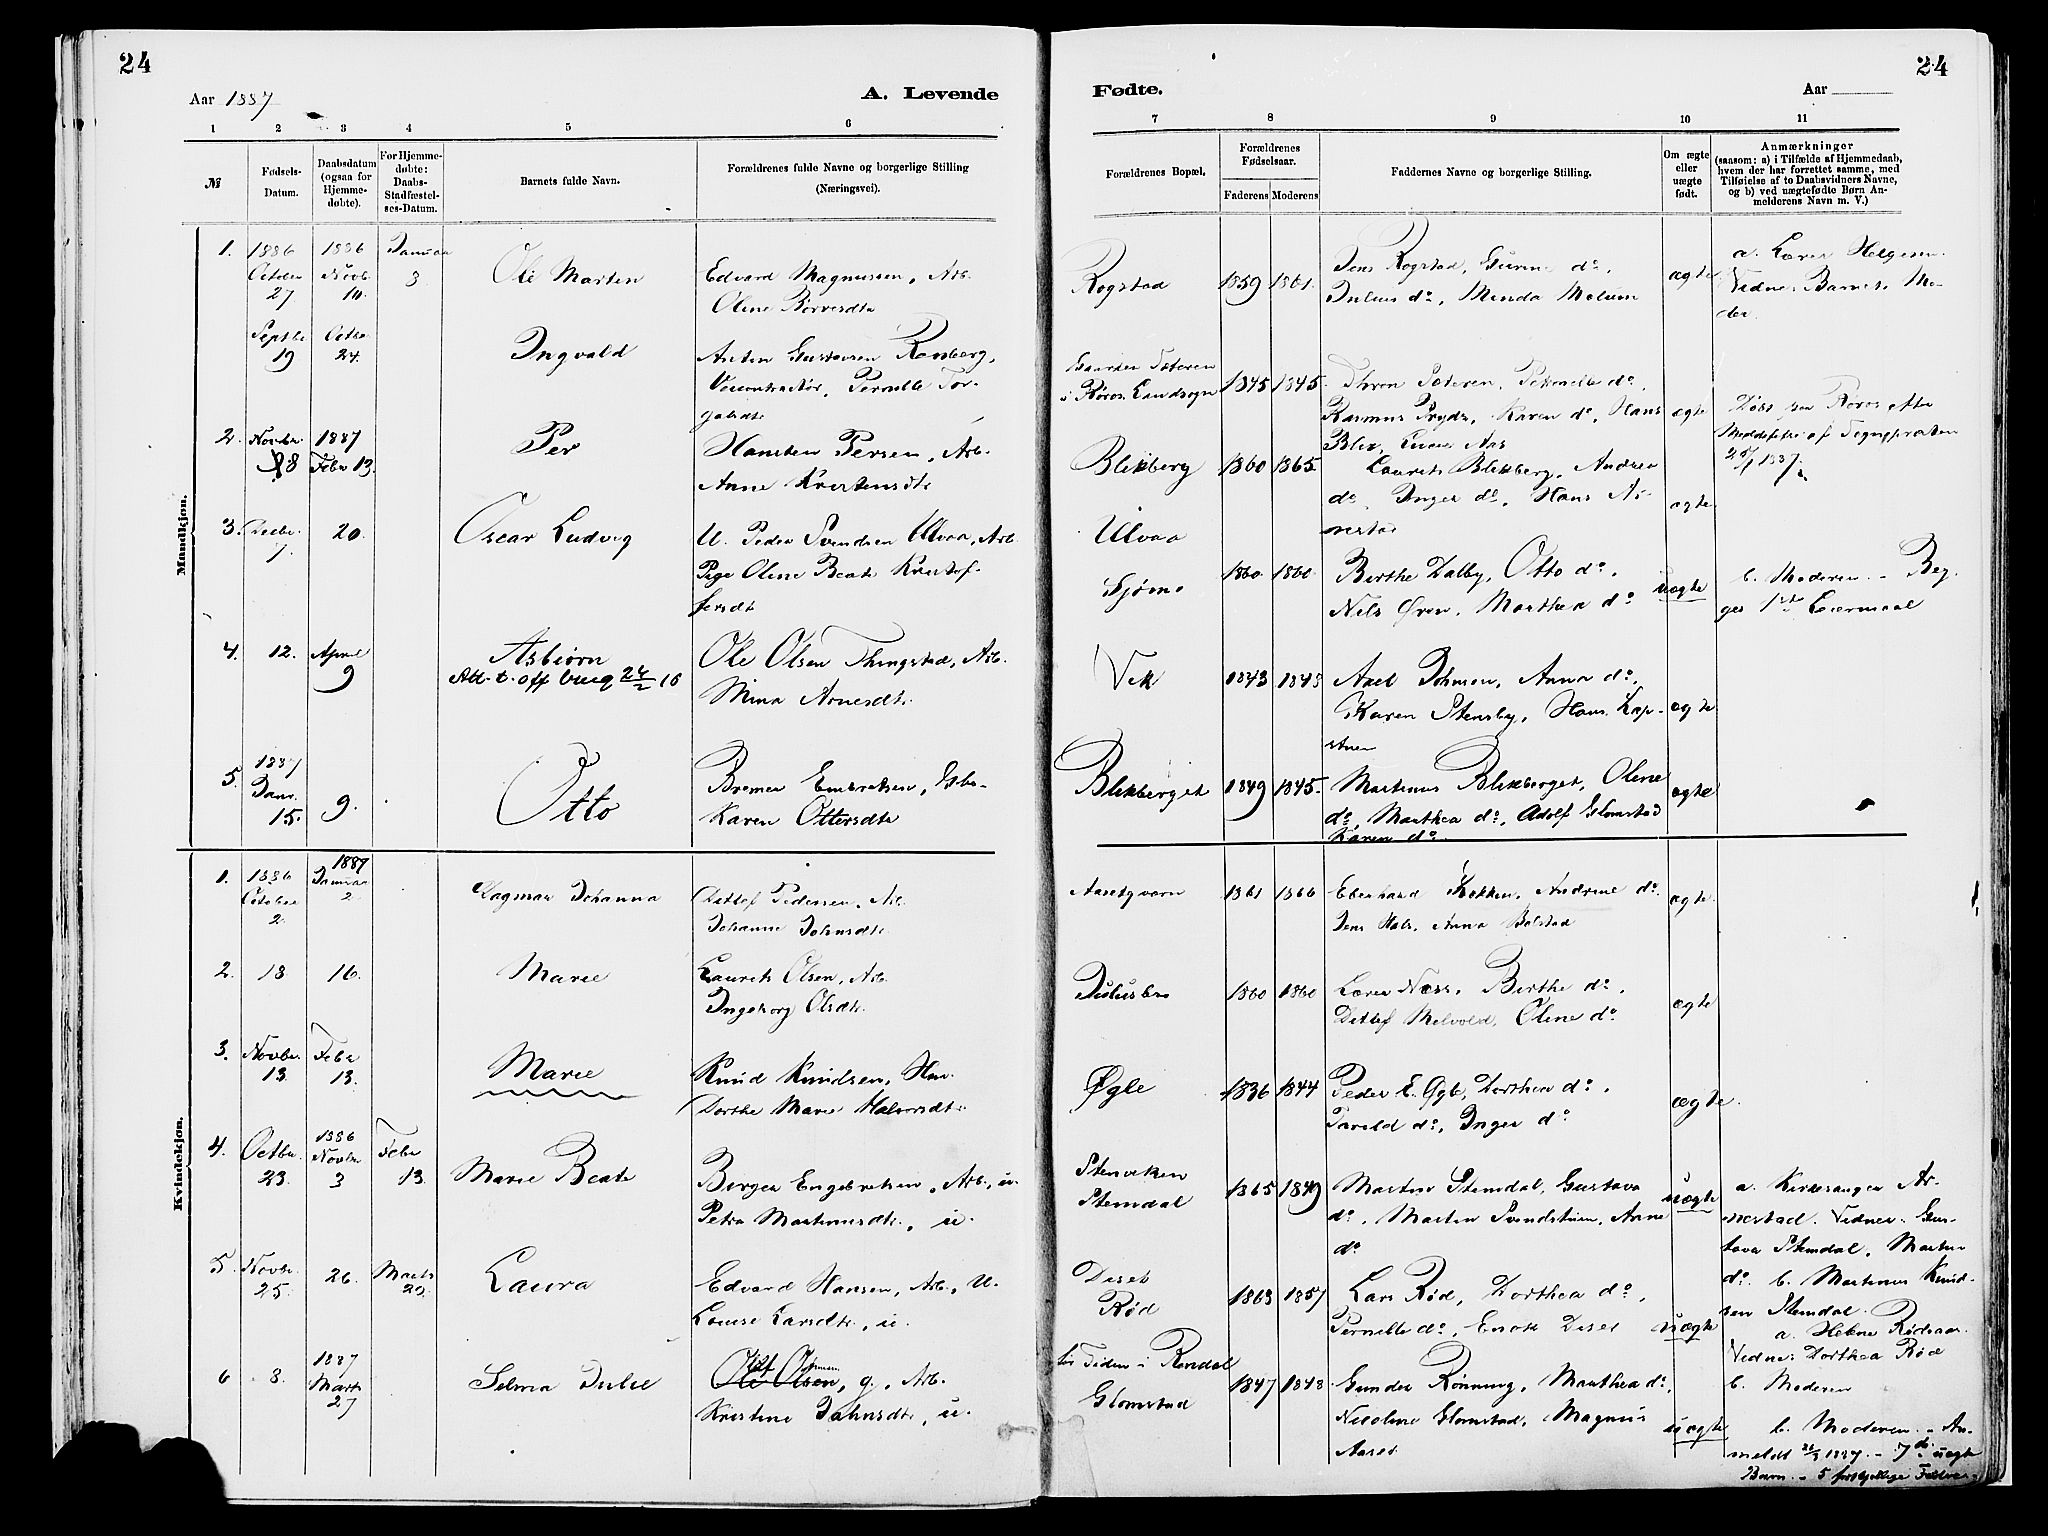 24
24
Aar 1887
A. Levende
Fødte.
Aar
1 2 3 4 5 6
7 8 9 10 11
№
Fødsels-
Datum.
Daabsdatum
(ogsaa for
Hjemme-
døbte).
For Hjemme-
døbte:
Daabs-
Stadfæstel-
ses-Datum.
Barnets fulde Navn.
Forældrenes fulde Navne og borgerlige Stilling
(Næringsvei).
Forældrenes Bopæl.
Forældrenes
Fødselsaar.
Faderens Moderens
Faddernes Navne og borgerlige Stilling.
Om ægte
eller
uægte
født.
Anmærkninger
(saasom: a) i Tilfælde af Hjemmedaab,
hvem der har forrettet samme, med
Tilføielse af to Daabsvidners Navne,
og b) ved uægtefødte Børn An-
melderens Navn m. V.)
Mandkjøn.
1. 1886 1886 Januar
Octobr Novb.
27 14. 3
Ole Martin
Edvard Magnussen, Arb.
Olene
Rogstad 1859 1861.
Jens Rogstad, Gurine do.
Julius do, Minda Melum
ægte
a. Lærer Helgesen.
Vidner Barnets Mo-
der.
Septbr Octbr
19 24.
Ingvald
Anton Gustavsen Ramberg,
Pernelle Tor-
galsdtr
i Røros Landsogn 1845 1845.
Petronelle do.
Rasmus Karen do, Hans
Aas
ægte
Døbt paa Røros efter
Meddelelse af Sognepræsten
1887.
2. Novbr. 1887
28 Febr 13.
Per
Hansten Persen, Arb.
Anne
Blikberg 1860 1865.
Laurits Blikberg, Andrea
do, Inger do, Hans Ar-
nestad
ægte
3. Decbr. 20.
7.
Oscar Ludvig
U. Peder Svendsen Ulvaa, Arb.
Pige Olene Beate Kristof-
fersdtr
Ulvaa
Sjømo 1860. 1860.
Berthe Dalby, Otto do.
Nils Øren, Marthea do
uægte
b. Moderen. - Beg-
ges 1ste Leiermaal
4. 12. April
9
Asbiørn
Ole Olsen Thingstad, Arb.
Mina Arnesdtr.
Vik 1843 1843
Axel Johnsen, Anna do.
Karen Stensby, Hans Løp-
stuen
ægte
5. 1887
Janr.
15. 9.
Otto
Bremer Embretsen, Gbr.
Karen Ottersdtr
Blikberget 1849 1845.
Martinus Blikberget, Olene
do, Marthea do, Adolf Glomstad
Karen do.
ægte
Kvindekjøn.
1. 1886 1887
October Januar
2. 2
Dagmar Johanna
Detlef Pedersen, Arb.
Johanne Johnsdtr.
1861 1866
Eberhard Bakken, Andrine do.
Jens Hals, Anna Bolstad
ægte
2. 18 16.
Marie
Laurits Olsen, Arb.
Ingeborg Olsdtr.
Julusbro 1860 1860
Lærer Næss, Berthe do.
Detlef Melvold, Olene do.
ægte
3. Novbr. Febr
13. 13.
Marie
Knud Knudsen, Hm.
Dorthe Marie Halvorsdtr.
Øgle 1836 1844
Peder E. Øgle, Dorthea do.
Tarald do, Inger do
ægte.
4. Octbr. 1886 Febr
23. Novbr 3 13.
Marie Beate
Birger Engebretsen, Arb., u.
Petra Martinusdtr., u.
Stenviken
Stemdal 1865 1849
Martin Stemdal, Gustava
do, Martin Svendstuen, Anne
do
uægte
a. Kirkesanger Ar-
nestad. Vidner: Gus-
tava Stemdal, Martin
do. b. Martinus Knud-
sen Stemdal.
5. Novbr. 26. Marts
25. 29.
Laura
Edvard Hansen, Arb., U.
Louise Larsdtr., u.
Deset
Rød 1863 1857
Lars Rød, Dorthea do,
Pernelle do, Enok Deset
uægte
a. Helene Rødsaas.
Vidner: Dorthea Rød
b. Moderen
6 8. 1887
Marts
27
Selma Julie
Ole Olsen, g., Arb.
Kristine Johnsdtr., u.
for Tiden i Rendal
Glomstad 1847 1848.
Gunder Rønning, Marthea do,
Nicoline Glomstad, Magnus
Aaset
uægte
b. Moderen. - An-
meldt 1887. - 7de uægte
Barn. - 5 forskjellige Fædre.